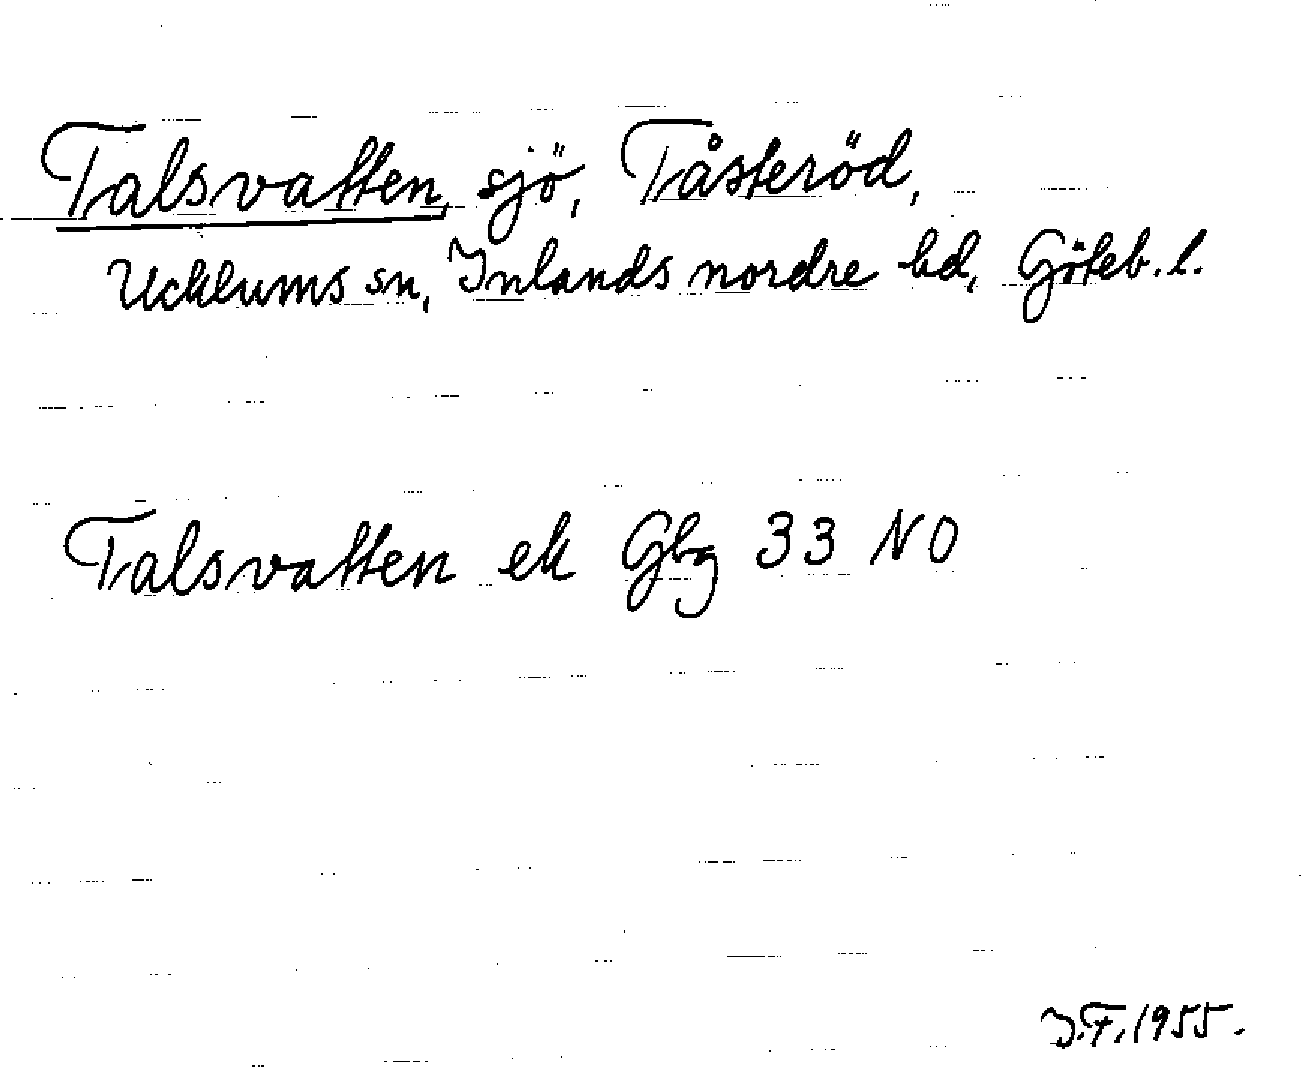 Talsvatten, sjö, Tåsteröd,
Ucklums sn, Inlands nordre hd, Göteb. l.
Talsvatten ek Gbg 33 NO
I.F. 1955.